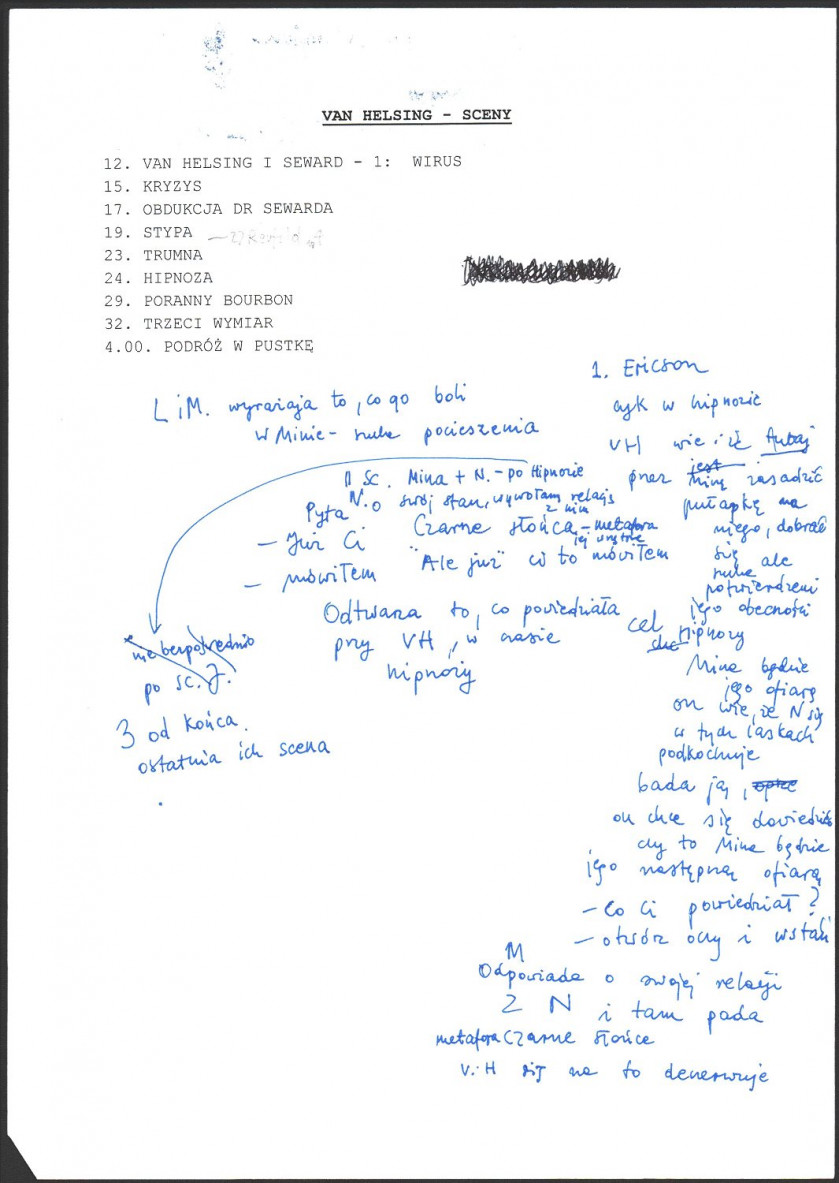 VAN HELSING - SCENY
12. VAN HELSING I SEWARD - 1: WIRUS
15. KRYZYS
17. OBDUKCJA DR SEWARDA
19. STYPA
23. TRUMNA
24. HIPNOZA
29. PORANNY BOURBON
32. TRZECI WYMIAR
4.00. PODRÓŻ W PUSTKĘ
L i M. wyrażają to, co go boli
w Minie - szuka pocieszenia
sc. Mina + N. - po Hipnozie
Pyta N. o swój stan, wywołam relację
z nim
Czarne słońca - metafora
jej wnętrze
- Już Ci
- mówiłem "Ale już" ci to mówiłem
Odtwarza to, co powiedziała
przy VH, w czasie
hipnozy
nie bezpośrednio
po sc. J.
3 od końca.
ostatnia ich scena
1. Ericson
cyk w hipnozie
VH wie i że tutaj
jest
przez Minę zasadzić
pułapkę na
niego, dobrać
się ale
szuka
potwierdzeni
jego obecności
cel Hipnozy
Mina będzie
jego ofiarą
on wie, że N się
w tych laskach
podkochuje
bada ją,
on chce się dowiedzieć
czy to Mina będzie
jego następną ofiarą
- Co Ci powiedział?
- otwórz oczy i wstań
M
Odpowiada o swojej relacji
z N i tam pada
metafora Czarne słońce
V.H się na to denerwuje